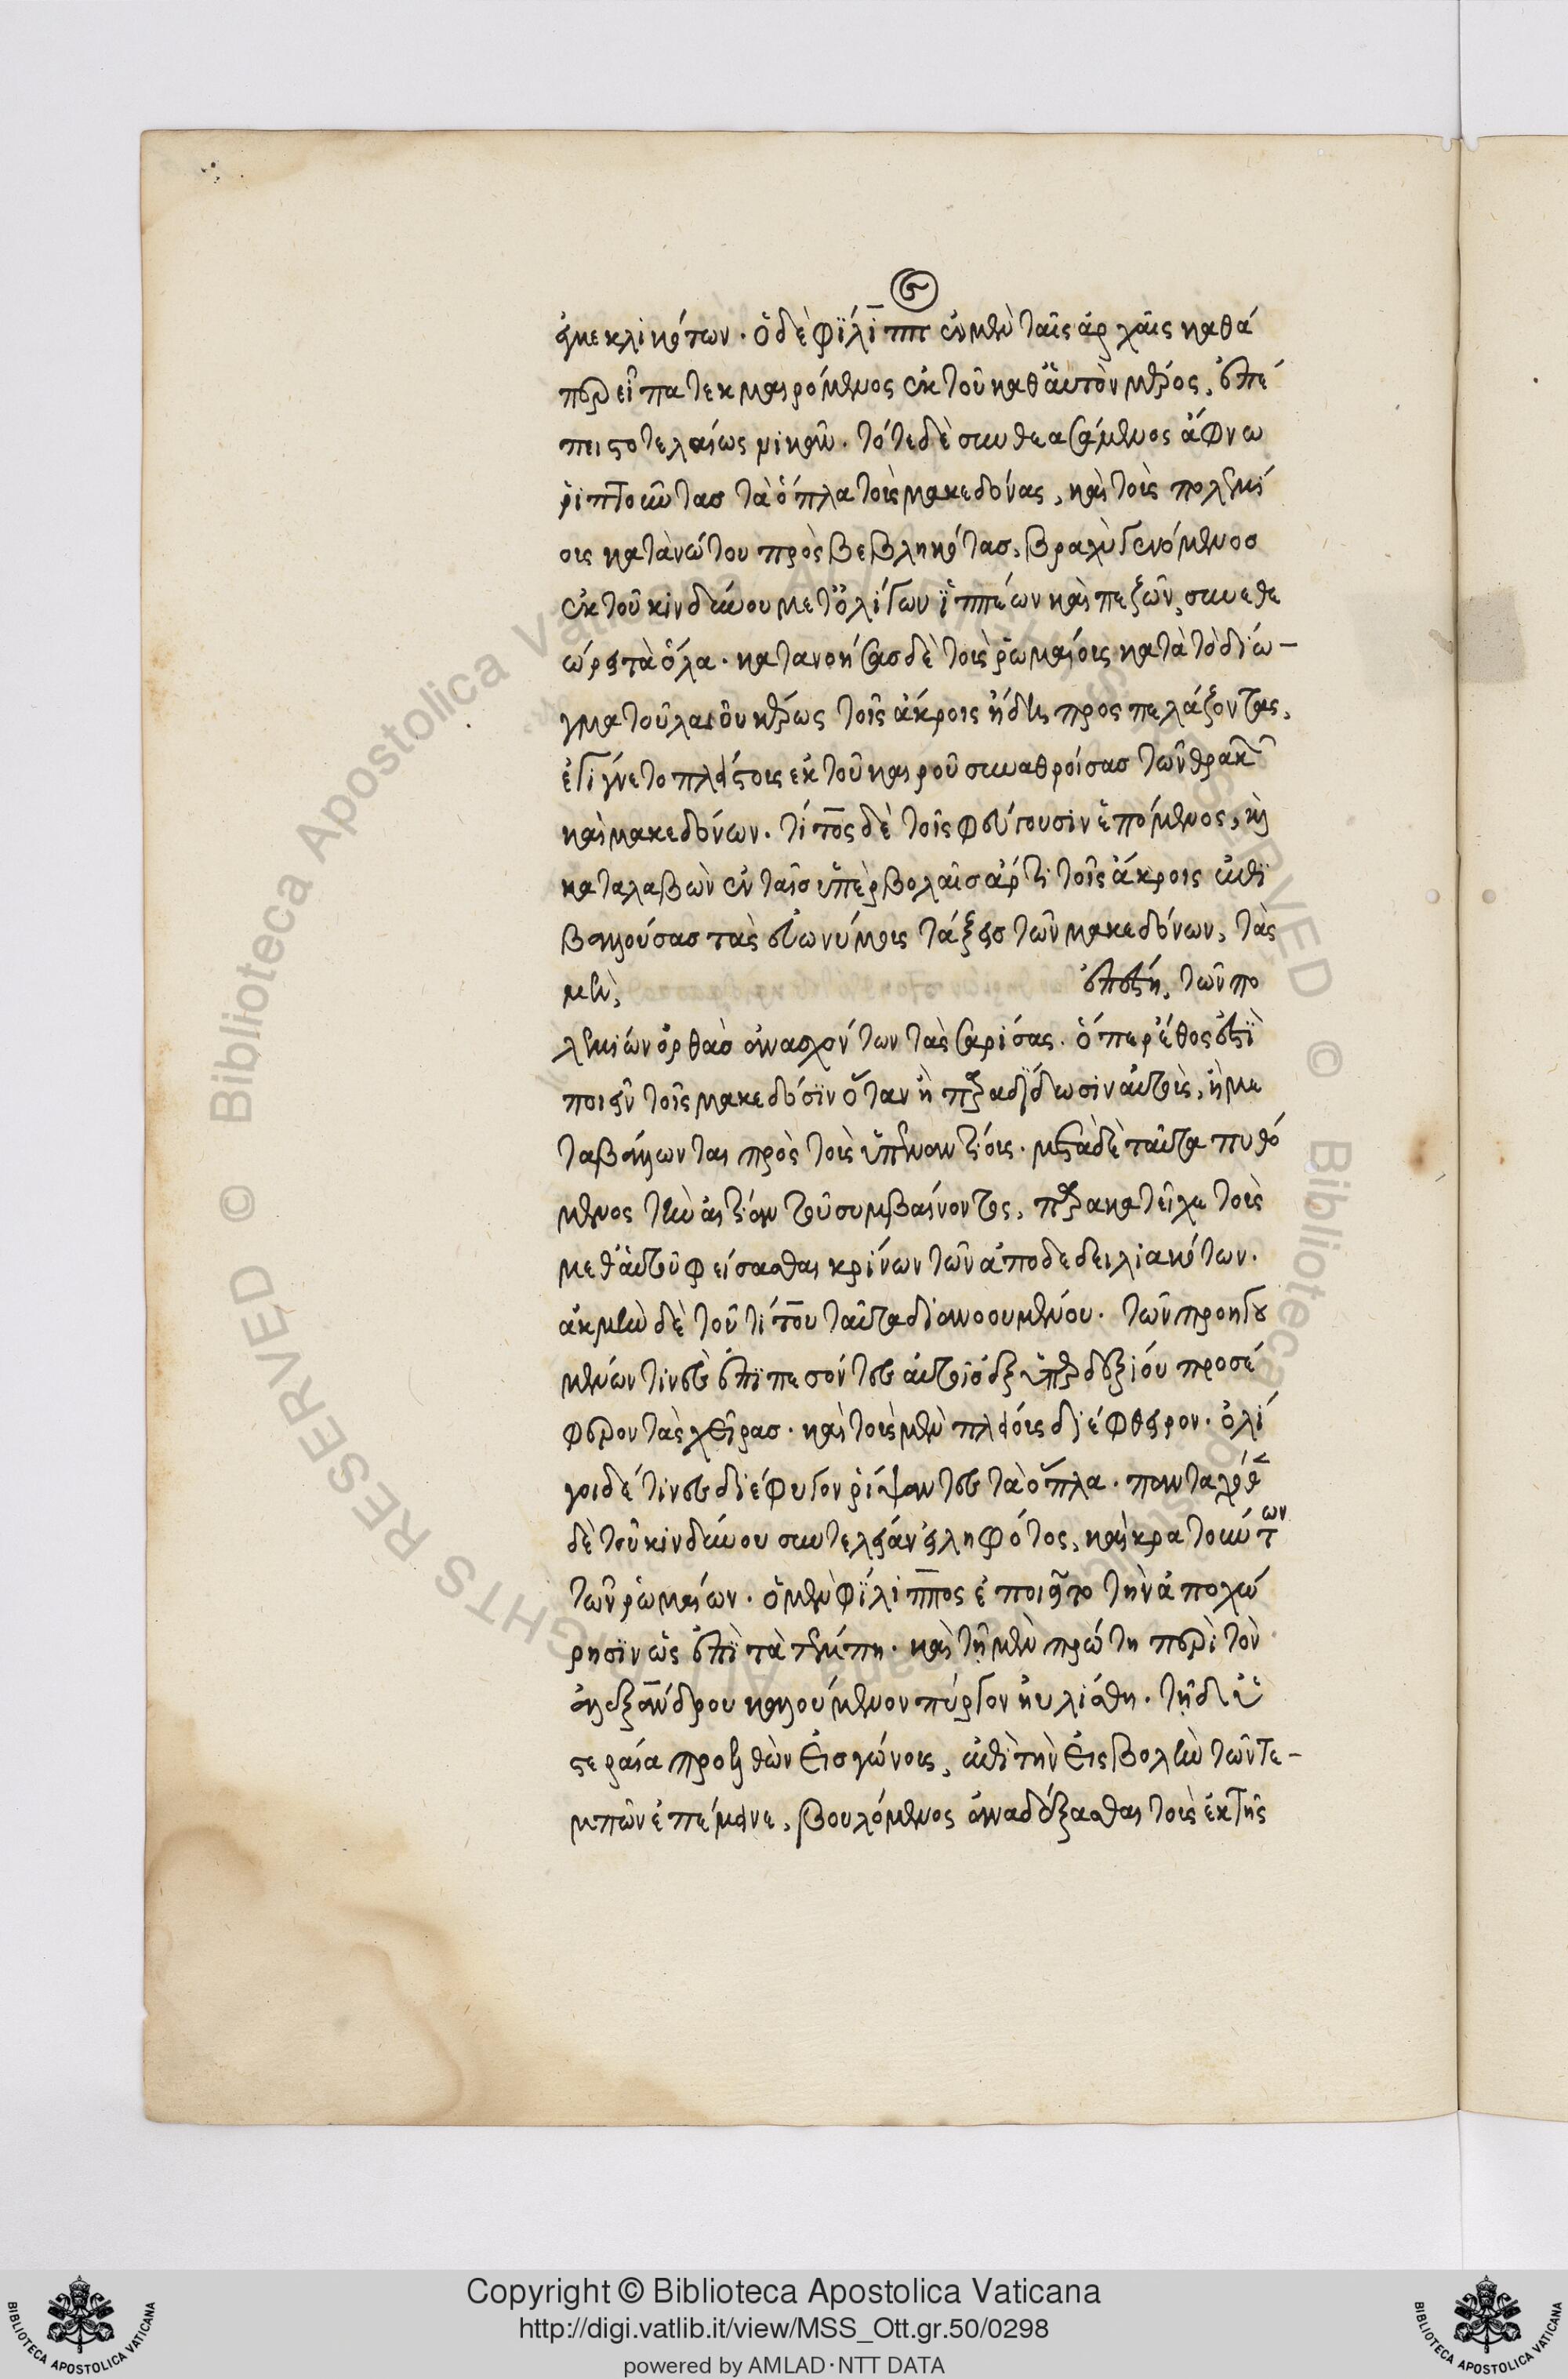 ἐγκεκλικότων. ὁ δὲ φίλιππος ἐν μὲν ταῖς ἀρχαῖς καθά
περ εἶπα τεκμαιρόμενος ἐκ τοῦ καθ᾽ αὑτὸν μέρος, ἐπέ
πειστο τελαίως νικᾶν. τότε δὲ συνθεασάμενος ἄφνω
ῥιπτοῦντας τὰ ὅπλα τοὺς μακεδόνας, καὶ τοὺς πολεμί
ους κατὰ νώτου προσβεβληκότας, βραχὺ γενόμενος
ἐκ τοῦ κινδύνου μετ᾽ ὀλίγων ἱππέων καὶ πεζῶν, συνεθε
ώρει τὰ ὅλα. κατανοήσας δὲ τοὺς ῥωμαίους κατὰ τὸ δίω-
γμα τοῦ λαιοῦ κέρως τοῖς ἄκροις ἤδη προσπελάζοντας,
ἐγίγνετο πλείστους ἐκ τοῦ καιροῦ συναθροίσας τῶν θρακῶν
καὶ μακεδόνων. τίτος δὲ τοῖς φεύγουσιν ἑπόμενος, καὶ
καταλαβὼν ἐν ταῖς ὑπερβολαῖς ἄρτι τοῖς ἄκροις ἐπι
βαλούσας τὰς εὐωνύμους τάξεις τῶν μακεδόνων, τὰς
μὲν, ἐπέστη, τῶν πο
λεμίων ὀρθὰς ἀνασχόντων τὰς σαρίσας. ὅπερ ἔθος ἐστὶ
ποιεῖν τοῖς μακεδόσιν ὅταν ἢ παραδιδῶσιν αὑτοὺς, ἢ με
ταβάλωνται πρὸς τοὺς ὑπεναντίους. μετὰ δὲ ταῦτα πυθό
μενος τὴν αἰτίαν τοῦ συμβαίνοντος, παρακατεῖχε τοὺς
μεθ᾽ αὑτοῦ φείσασθαι κρίνων τῶν ἀποδεδειλιακότων.
ἀκμὴν δὲ τοῦ τίτου ταῦτα διανοουμένου. τῶν προηγου
μένων τινὲς ἐπιπεσόντες αὐτοῖς ἐξ ὑπερδεξίου προσέ
φερον τὰς χεῖρας. καὶ τοὺς μὲν πλείους διέφθειρον. ὀλί
γοι δέ τινες διέφυγον ῥίψαντες τὰ ὅπλα. πανταχόθεν
δὲ τοῦ κινδύνου συντέλειαν εἰληφότος, καὶ κρατούντων
τῶν ῥωμαίων. ὁ μὲν φίλιππος ἐποιεῖτο τὴν ἀποχώ
ρησιν ὡς ἐπὶ τὰ τέμπη. καὶ τῇ μὲν πρώτῃ περὶ τὸν
ἀλεξάνδρου καλούμενον πύργον ηὐλίσθη. τῇ δ᾽ ὑ
στεραία προελθὼν εἰς γόνους, ἐπὶ τὴν εἰσβολὴν τῶν τε-
μπῶν ἐπέμεινε, βουλόμενος ἀναδέξασθαι τοὺς ἐκ τῆς
Copyright © Biblioteca Apostolica Vaticana
http://digi.vatlib.it/view/MSS_Ott.gr.50/0298
powered by AMLAD·NTT DATA